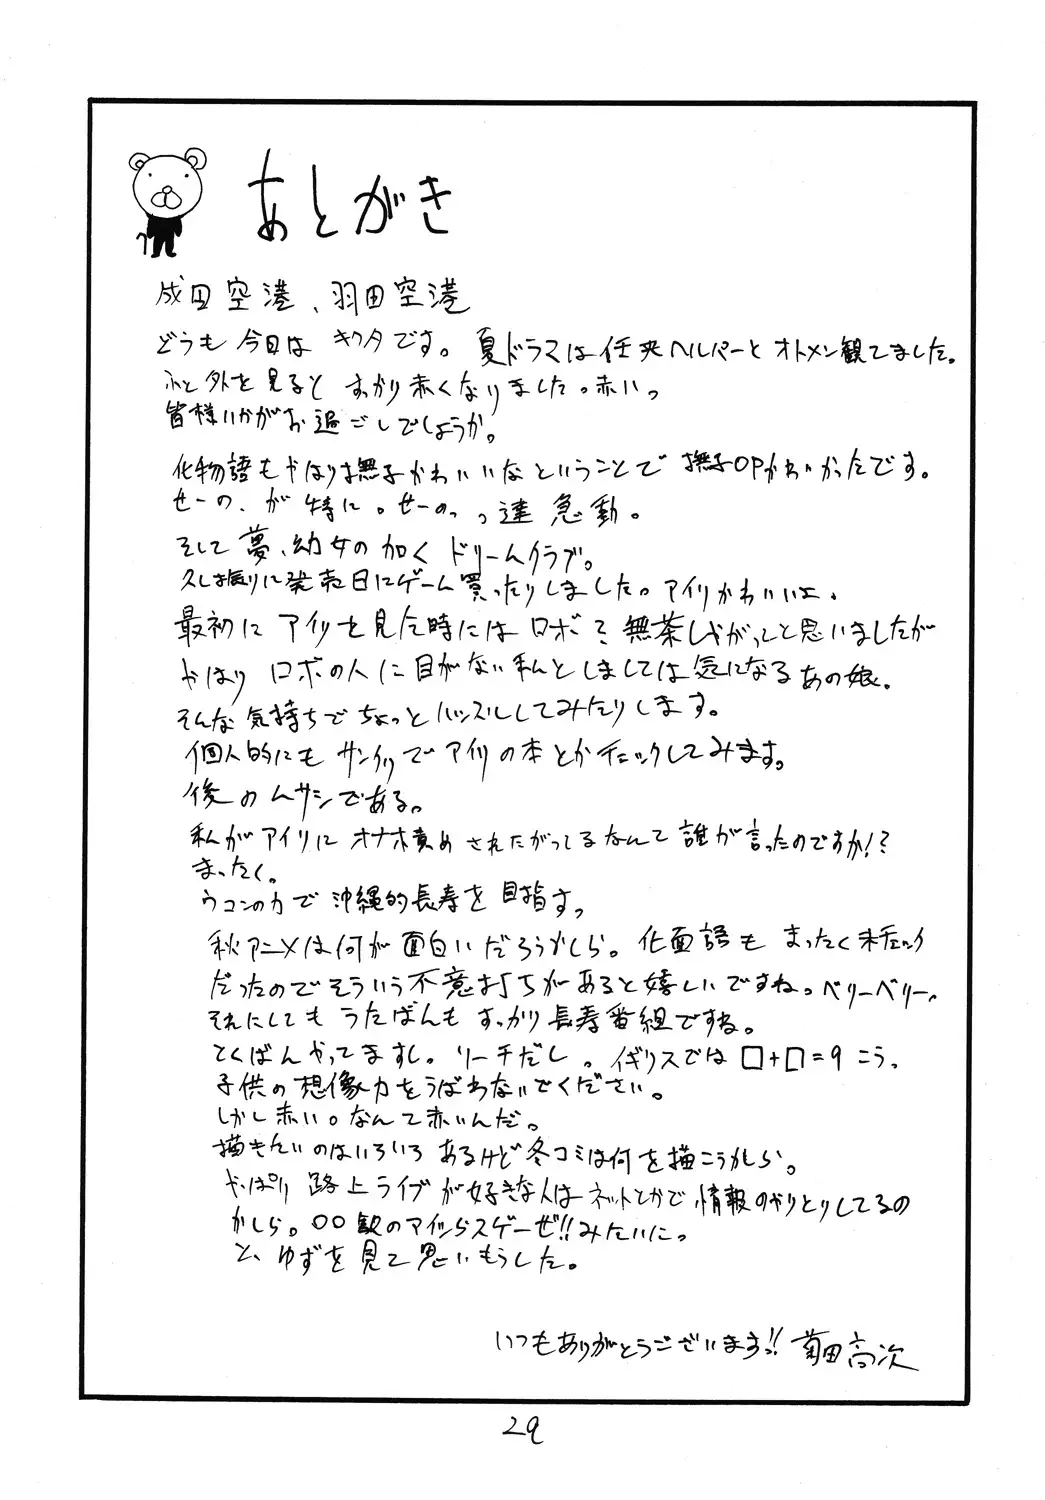 あとがき
成田空港、羽田空港
どうも今日は キクタです。夏ドラマは任侠ヘルパーとオトメン観てました。
ふと外を見ると すっかり赤くなりました。赤いっ
皆様いかがお過ごしでしょうか。
化物語もやはり撫子かわいいなということで 撫子OPかわいかったです。
せーの、が特に。せーのっっ達急動。
そして夢、幼女の如く ドリームクラブ。
久し振りに発売日にゲーム買ったりしました。アイリかわいいよ、
最初に アイリを見た時には ロボ?無茶しやがってと思いましたが
やはり ロボの人に目がない私としましては気になるあの娘。
そんな気持ちでちょっとハッスルしてみたりします。
個人的にも サンクリでアイリの本とかチェックしてみます。
後のムサシである。
私がアイリに オナホ責めされたがってるなんて誰が言ったのですか!?
まったく。
ウコンの力で沖縄的長寿を目指すっ
秋アニメは何が面白いだろうかしら。化物語も まったく未チェック
だったのでそういう不意打ちがあると嬉しいですね。ベリーベリー。
それにしても うたばんも すっかり長寿番組ですね。
とくばんやってますし。リーチだし。イギリスでは□+□=9 こう。
子供の想像力をうばわないでください。
しかし赤い。なんて赤いんだ。
描きたいのはいろいろ あるけど冬コミは何を描こうかしら。
やっぱり 路上ライブが好きな人は ネットとかで情報のやりとりしてるの
かしら。○○駅のアイツらスゲーぜ!!みたいにっ
と、ゆずを見て思いもうした。
いつもありがとうございますっ!! 菊田高次
29